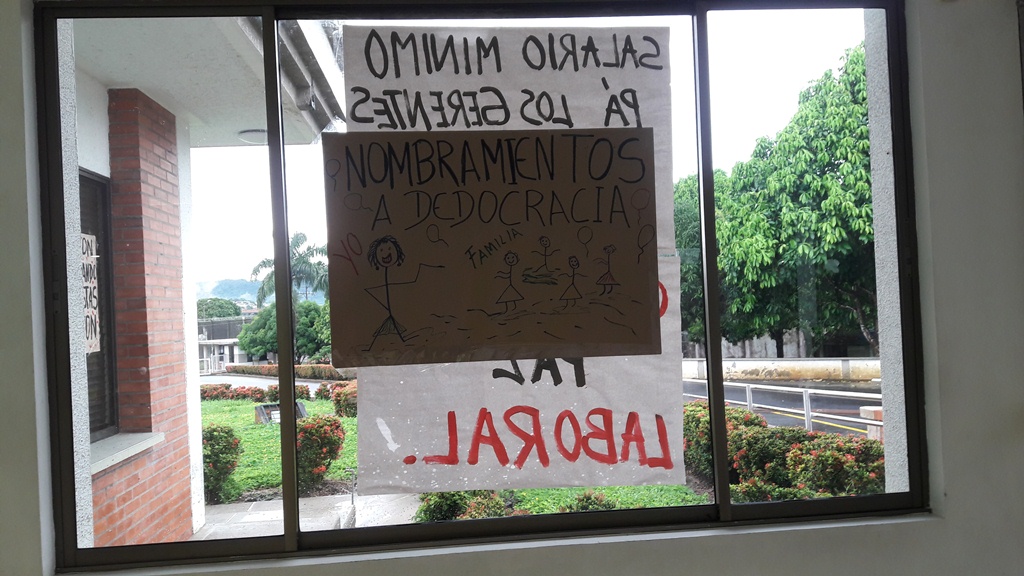 SALARIO MINIMO
PÁ LOS GERENTES
NOMBRAMIENTOS
A DEDOCRACIA
YO
FAMILIA
LABORAL.